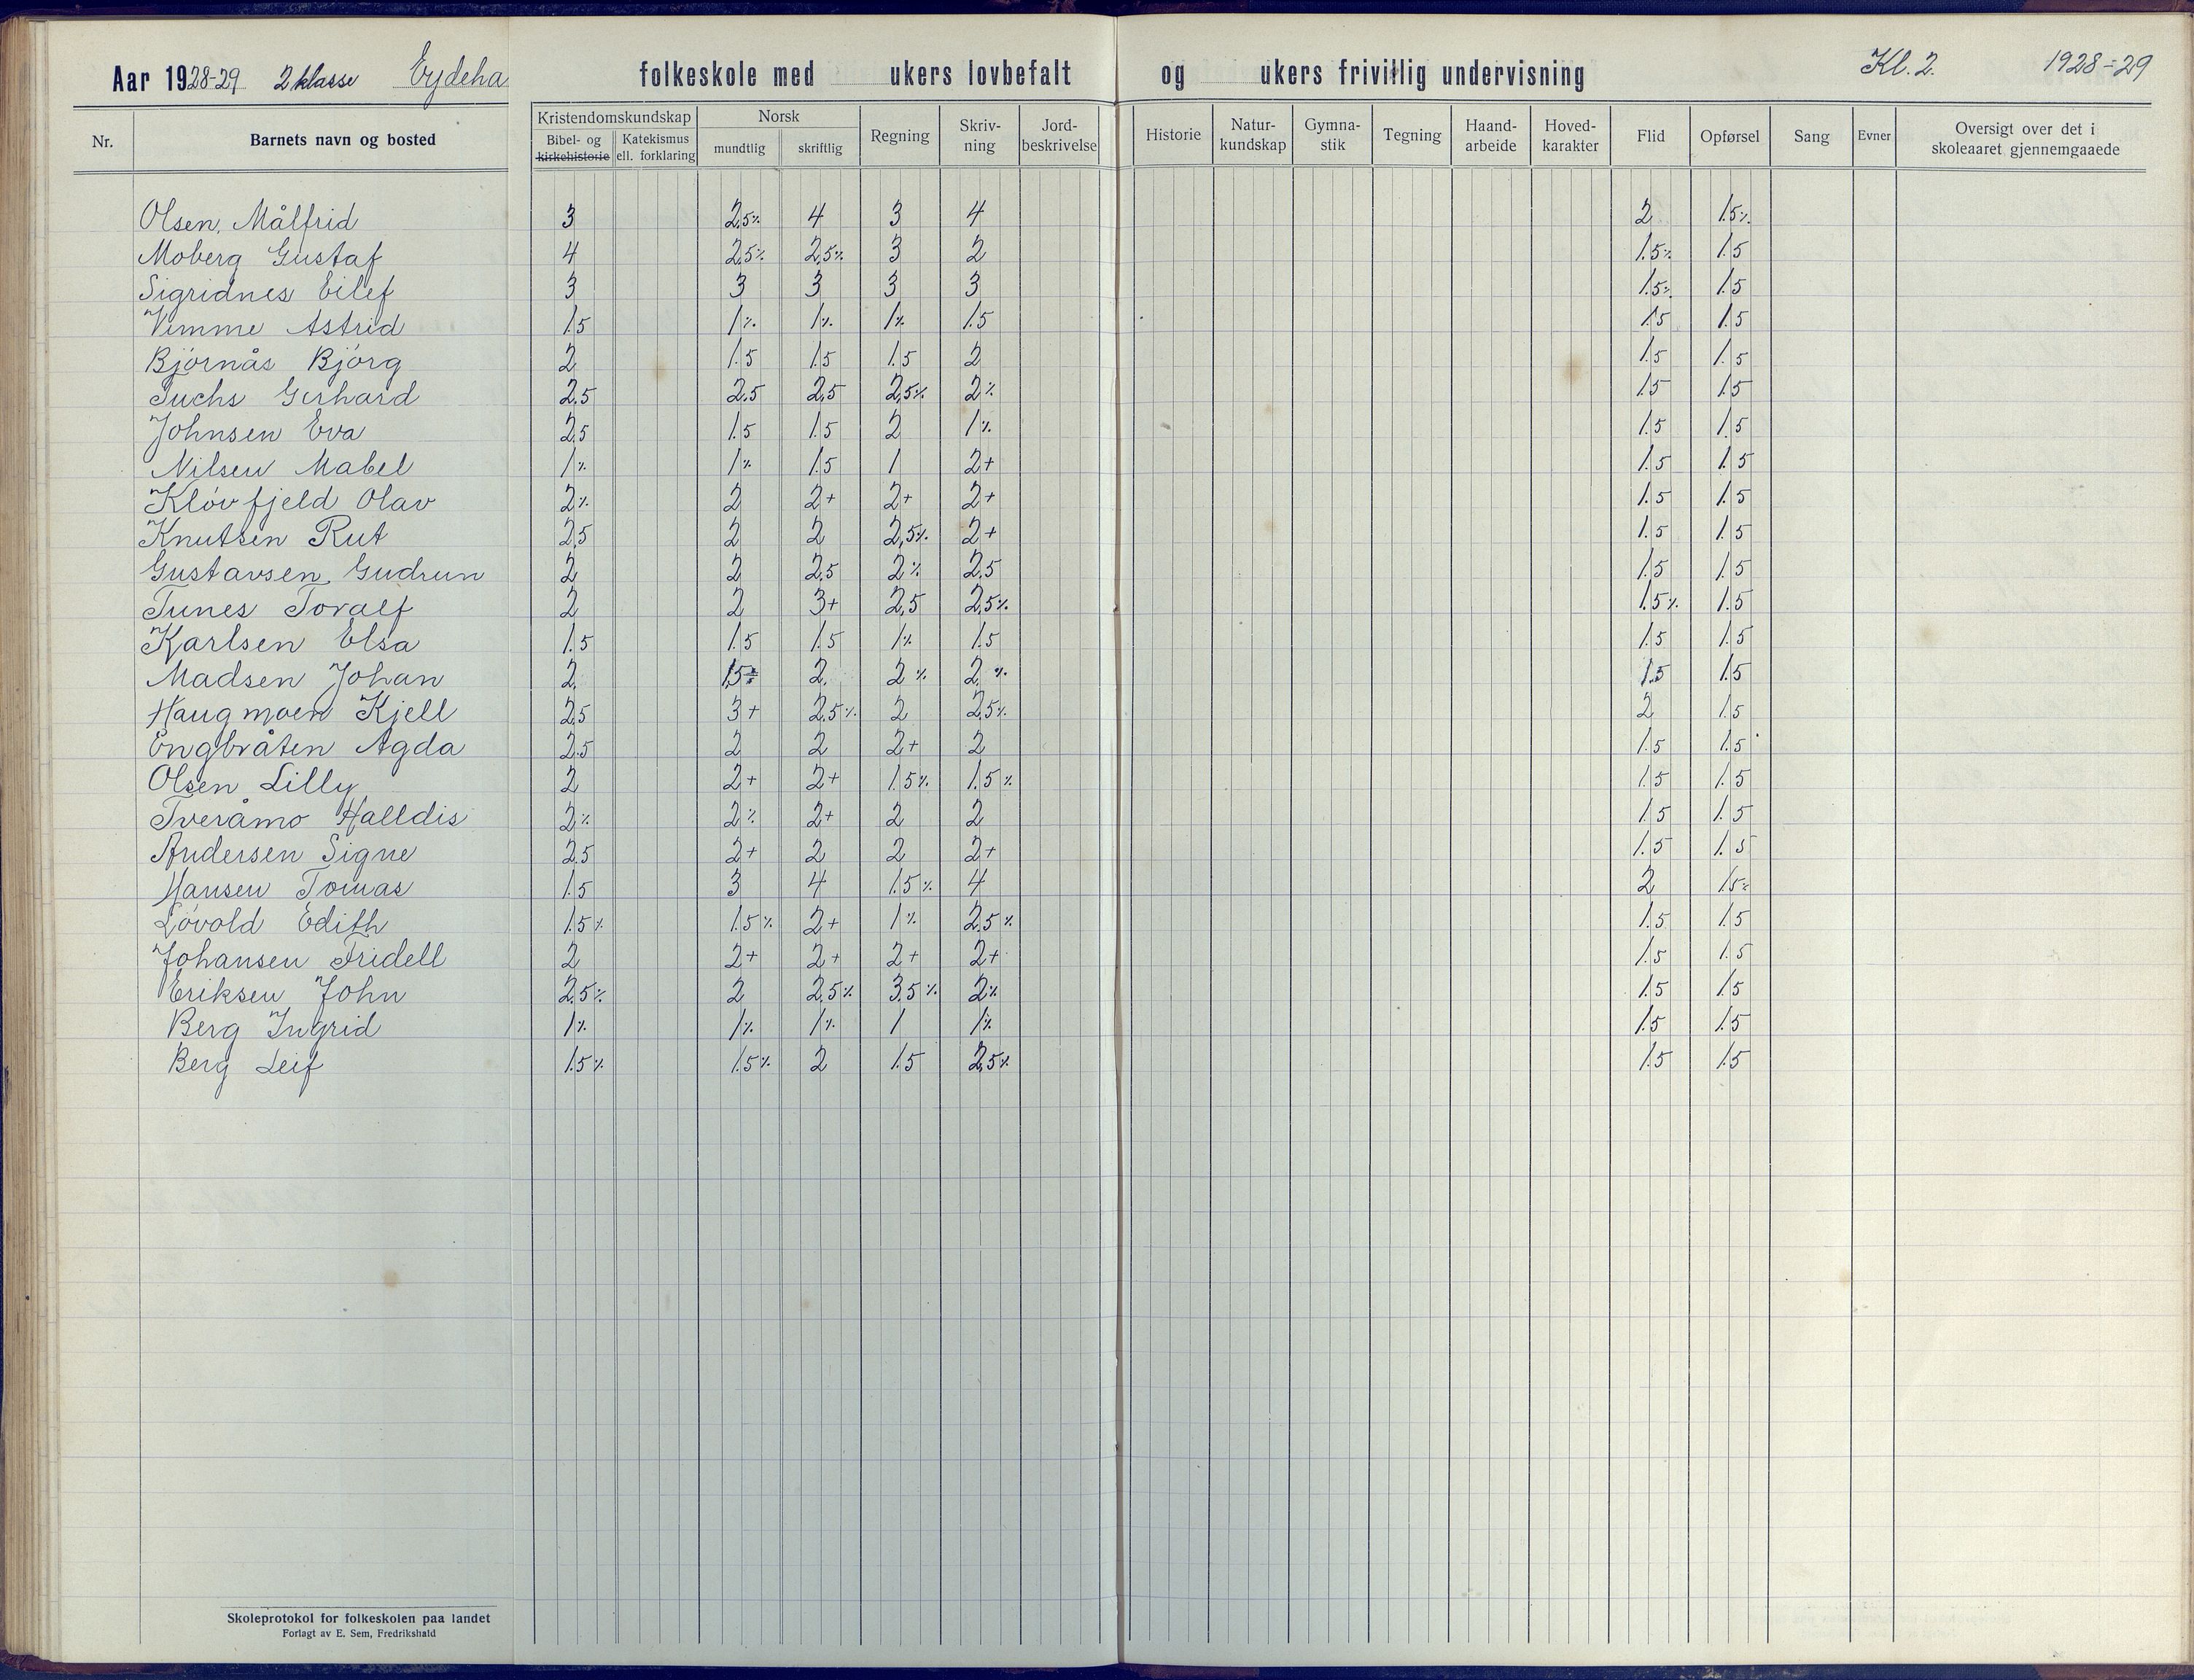 Aar 1928-29 2 klasse Eydeha folkeskole med ukers lovbefalt og ukers frivillig undervisning Kl. 2. 1928-29
Nr. Barnets navn og bosted Kristendomskundskap Norsk Regning Skriv-ning Jord-beskrivelse Historie Natur-kundskap Gymna-stik Tegning Haand-arbeide Hoved-karakter Flid Opførsel Sang Evner Oversigt over det i skoleaaret gjennemgaaede
Bibel- og kirkehistorie Katekismus ell. forklaring mundtlig skriftlig
Olsen, Målfrid 3 2.5% 4 3 4 2 1.5%
Moberg Gustaf 4 2.5% 2.5% 3 2 1.5% 1.5
Sigridnes Eilef 3 3 3 3 3 1.5% 1.5
Vimme Astrid 1.5 1% 1% 1% 1.5 1.5 1.5
Björnås Björg 2 1.5 1.5 1.5 2 1.5 1.5
Fuchs Gerhard 2.5 2.5 2.5 2.5% 2% 1.5 1.5
Johnsen Eva 2.5 1.5 1.5 2 1% 1.5 1.5
Nilsen Mabel 1% 1% 1.5 1 2+ 1.5 1.5
Klövfjeld Olav 2% 2 2+ 2+ 2+ 1.5 1.5
Knutsen Rut 2.5 2 2 2,5% 2+ 1.5 1.5
Gustavsen, Gudrun 2 2 2.5 2% 2.5 1.5 1.5
Tunes Toralf 2 2 3+ 2,5 2.5% 1.5% 1.5
Karlsen Elsa 1.5 1.5 1.5 1% 1.5 1.5 1.5
Madsen Johan 2. 1,5% 2. 2% 2% 1.5 1.5
Haugmoen Kjell 2.5 3+ 2.5% 2 2.5% 2 1.5
Engbråten Agda 2.5 2 2 2+ 2 1.5 1.5
Olsen Lilly 2 2+ 2+ 1.5% 1.5% 1.5 1.5
Tveråmo Halldis 2% 2% 2+ 2 2 1.5 1.5
Andersen Signe 2.5 2+ 2 2 2+ 1.5 1.5
Hansen Tomas 1.5 3 4 1.5% 4 2 1.5%
Lövold Edith 1.5% 1.5% 2+ 1% 2.5% 1.5 1.5
Johansen Fridell 2 2+ 2+ 2+ 2+ 1.5 1.5
Eriksen John 2.5% 2 2.5% 3.5% 2% 1.5 1.5
Berg Ingrid 1% 1% 1% 1 1% 1.5 1.5
Berg Leif 1.5% 1.5% 2 1.5 2.5% 1.5 1.5
Skoleprotokol for folkeskolen paa landet
Forlagt av E. Sem, Fredrikshald